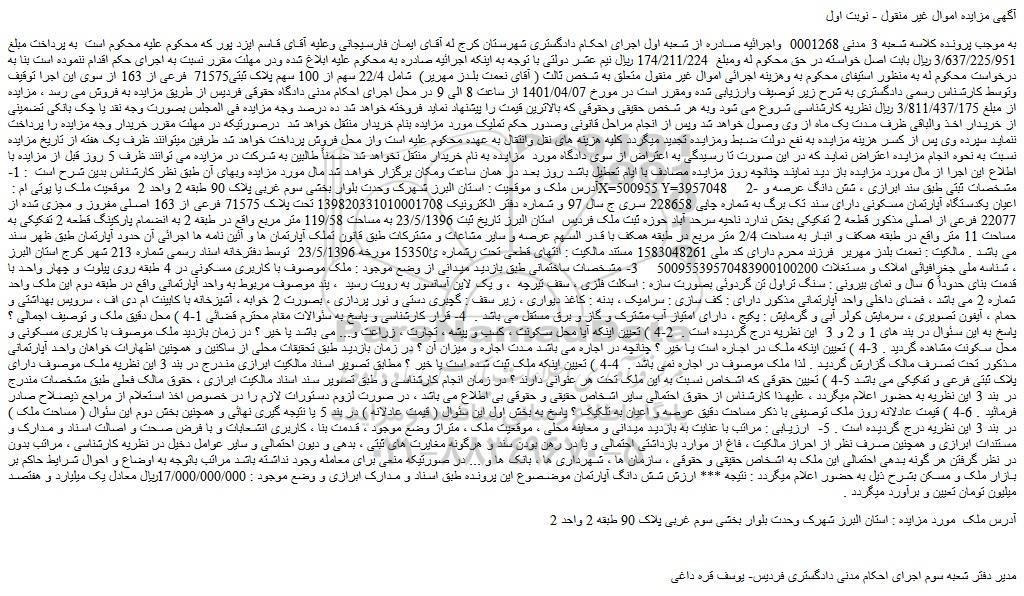 آگهی مزایده اموال غیر منقول - نوبت اول
به موجب پرونده کلاسه شعبه 3 مدنی 0001268 واجرائیه صادره از شعبه اول اجرای احکام دادگستری شهرستان کرج له آقای ایمان فارسیجانی وعلیه آقای قاسم ایزد پور که محکوم علیه محکوم است به پرداخت مبلغ
3/637/225/951 ریال بابت اصل خواسته در حق محکوم له ومبلغ 174/211/224 ریال نیم عشر دولتی با توجه به اینکه اجرائیه صادره به محکوم علیه ابلاغ شده ودر مهلت مقرر نسبت به اجرای حکم اقدام ننموده است بنا به
درخواست محکوم له به منظور استیفای محکوم به وهزینه اجرائی اموال غیر منقول متعلق به شخص ثالث ( آقای نعمت بلدز مهریر) شامل 22/4 سهم از 100 سهم پلاک ثبتی71575 فرعی از 163 از سوی این اجرا توقیف
وتوسط کارشناس رسمی دادگستری به شرح زیر توصیف وارزیابی شده ومقرر است در مورخ 1401/04/07 از ساعت 8 الی 9 در محل اجرای احکام مدنی دادگاه حقوقی فردیس از طریق مزایده به فروش می رسد ، مزایده
از مبلغ 3/811/437/175 ریال نظریه کارشناسی شروع می شود وبه هر شخص حقیقی وحقوقی که بالاترین قیمت را پیشنهاد نماید فروخته خواهد شد ده درصد وجه مزایده فی المجلس بصورت وجه نقد یا چک بانکی تضمینی
از خریدار اخذ والباقی ظرف مدت یک ماه از وی وصول خواهد شد وپس از انجام مراحل قانونی وصدور حکم تملیک مورد مزایده بنام خریدار منتقل خواهد شد درصورتیکه در مهلت مقرر خریدار وجه مزایده را پرداخت
ننماید سپرده وی پس از کسر هزینه مزایده به نفع دولت ضبط ومزایده تجدید میگردد کلیه هزینه های نقل وانتقال به عهده محکوم علیه است واز محل فروش پرداخت خواهد شد طرفین میتوانند ظرف یک هفته از تاریخ مزایده
نسبت به نحوه انجام مزایده اعتراض نماید که در این صورت تا رسیدگی به اعتراض از سوی دادگاه مورد مزایده به نام خریدار منتقل نخواهد شد ضمناً طالبین به شرکت در مزایده می توانند ظرف 5 روز قبل از مزایده با
اطلاع این اجرا از مال مورد مزایده باز دید نمایند چنانچه روز مزایده مصادف با ایام تعطیل باشد روز بعد در همان ساعت ومکان برگزار خواهد شد مال مورد مزایده وبهای آن طبق نظر کارشناس بدین شرح است : 1-
مشخصات ثبتی طبق سند ابرازی ، شش دانگ عرصه و 2- X=500955 Y=3957048آدرس ملک و موقعیت : استان البرز شهرک وحدت بلوار بخشی سوم غربی پلاک 90 طبقه 2 واحد 2 موقعیت ملک یا یوتی ام :
اعیان یکدستگاه آپارتمان مسکونی دارای سند تک برگ به شماره چاپی 228658 سری ج سال 97 و شماره دفتر الکترونیک 139820331010001708 تحت پلاک 71575 فرعی از 163 اصلی مفروز و مجزی شده از
22077 فرعی از اصلی مذکور قطعه 2 تفکیکی بخش ندارد ناحیه سرحد آباد حوزه ثبت ملک فردیس استان البرز تاریخ ثبت 23/5/1396 به مساحت 119/58 متر مربع واقع در طبقه 2 به انضمام پارکینگ قطعه 2 تفکیکی به
مساحت 11 متر واقع در طبقه همکف و انبار به مساحت 2/4 متر مربع در طبقه همکف با قدر السهم عرصه و سایر مشاعات و مشترکات طبق قانون تملک آپارتمان ها و آئین نامه ها اجرائی آن حدود آپارتمان طبق ظهر سند
می باشد . مالکیت : نعمت بلدز مهریر فرزند محرم دارای کد ملی 1583048261 مستند مالکیت : انتهای قطعی تحت رشماره ی15350 مورخه 23/5/1396 توسط دفترخانه اسناد رسمی شماره 213 شهر کرج استان البرز
، شناسه ملی جغرافیائی املاک و مستغلات 50095539570483900100200 3- مشخصات ساختمانی طبق بازدید میدانی از وضع موجود : ملک موصوف با کاربری مسکونی در 4 طبقه روی پیلوت و چهار واحد با
قدمت بنای حدوداً 6 سال و نمای بیرونی : سنگ تراول تن گردوئی بصورت سازه : اسکلت فلزی ، سقف تیرچه ، و یک لاین آسانسور به رویت رسید ، بند موصوف مربوط به واحد آپارتمانی واقع در طبقه دوم این ملک واحد
شماره 2 می باشد ، فضای داخلی واحد آپارتمانی مذکور دارای : کف سازی : سرامیک ، بدنه : کاغذ دیواری ، زیر سقف : گچبری دستی و نور پردازی ، بصورت 2 خوابه ، آشپزخانه با کابینت ام دی اف ، سرویس بهداشتی و
حمام ، آیفون تصویری ، سرمایش کولر آبی و گرمایش : پکیج ، دارای امتیاز آب مشترک و گاز و برق مستقل می باشد . 4- قرار کارشناسی و پاسخ به سئوالات مقام محترم قضائی 1-4 ) محل دقیق ملک و توصیف اجمالی ؟
پاسخ به این سئوال در بند های 1 و 2 و 3 این نظریه درج گردیده است . 2-4 ) تعیین اینکه آیا محل سکونت ، کسب و پیشه ، تجارت ، زراعت و... می باشد یا خیر ؟ در زمان بازدید ملک موصوف با کاربری مسکونی و
محل سکونت مشاهده گردید . 3-4 ) تعیین اینکه ملک در اجاره است یا خیر ؟ چنانچه در اجاره می باشد مدت اجاره و میزان آن ؟ در زمان بازدید طبق تحقیقات محلی از ساکنین و همچنین اظهارات خواهان واحد آپارتمانی
مذکور تحت تصرف مالک گزارش گردید . لذا ملک موصوف در اجاره نمی باشد . 4-4 ) تعیین اینکه ملک ثبت شده است یا خیر ؟ مطابق تصویر اسناد مالکیت ابرازی مندرج در بند 3 این نظریه ملک موصوف دارای
پلاک ثبتی فرعی و تفکیکی می باشد 5-4 ) تعیین حقوقی که اشخاص نسبت به این ملک تحت هر عنوانی دارند ؟ در زمان انجام کارشناسی و طبق تصویر سند اسناد مالکیت ابرازی ، حقوق مالک فعلی طبق مشخصات مندرج
در بند 3 این نظریه به حضور اعلام میگردد ، علیهذا کارشناس از حقوق احتمالی سایر اشخاص حقیقی و حقوقی بی اطلاع می باشد ، در صورت لزوم دستورات لازم را در خصوص اخذ استعلام از مراجع ذیصلاح صادر
فرمائید . 6-4 ) قیمت عادلانه روز ملک توصیفی با ذکر مساحت دقیق عرصه و اعیان به تفکیک ؟ پاسخ به بخش اول این سئوال ( قیمت عادلانه ) در بند 5 یا نتیجه گیری نهائی و همچنین بخش دوم این سئوال ( مساحت ملک )
در بند 3 این نظریه درج گردیده است . 5- ارزیابی : مراتب با عنایت به بازدید میدانی و معاینه محلی ، موقعیت ملک ، متراژ وضع موجود ، قدمت بنا ، کاربری انشعابات و با فرض صحت و اصالت اسناد و مدارک و
مستندات ابرازی و همچنین صرف نظر از احراز مالکیت ، فاغ از موارد بازداشتی احتمالی و یا در رهن بودن سند و هرگونه مغایرت های ثبتی ، بدهی و دیون احتمالی و سایر عوامل دخیل در نظریه کارشناسی ، مراتب بدون
در نظر گرفتن هر گونه بدهی احتمالی این ملک به اشخاص حقیقی و حقوقی ، سازمان ها ، شهرداری ها ، بانک ها و ... در صورتیکه منعی برای معامله وجود نداشته باشد مراتب باتوجه به اوضاع و احوال شرایط حاکم بر
بازار ملک و مسکن بشرح ذیل به حضور اعلام میگردد : نتیجه *** ارزش شش دانگ آپارتمان موضصوع این پرونده طبق اسناد و مدارک ابرازی و وضع موجود : 17/000/000/000ریال معادل یک میلیارد و هفتصد
میلیون تومان تعیین و برآورد میگردد .
آدرس ملک مورد مزایده : استان البرز شهرک وحدت بلوار بخشی سوم غربی پلاک 90 طبقه 2 واحد 2
مدیر دفتر شعبه سوم اجرای احکام مدنی دادگستری فردیس- یوسف قره داغی